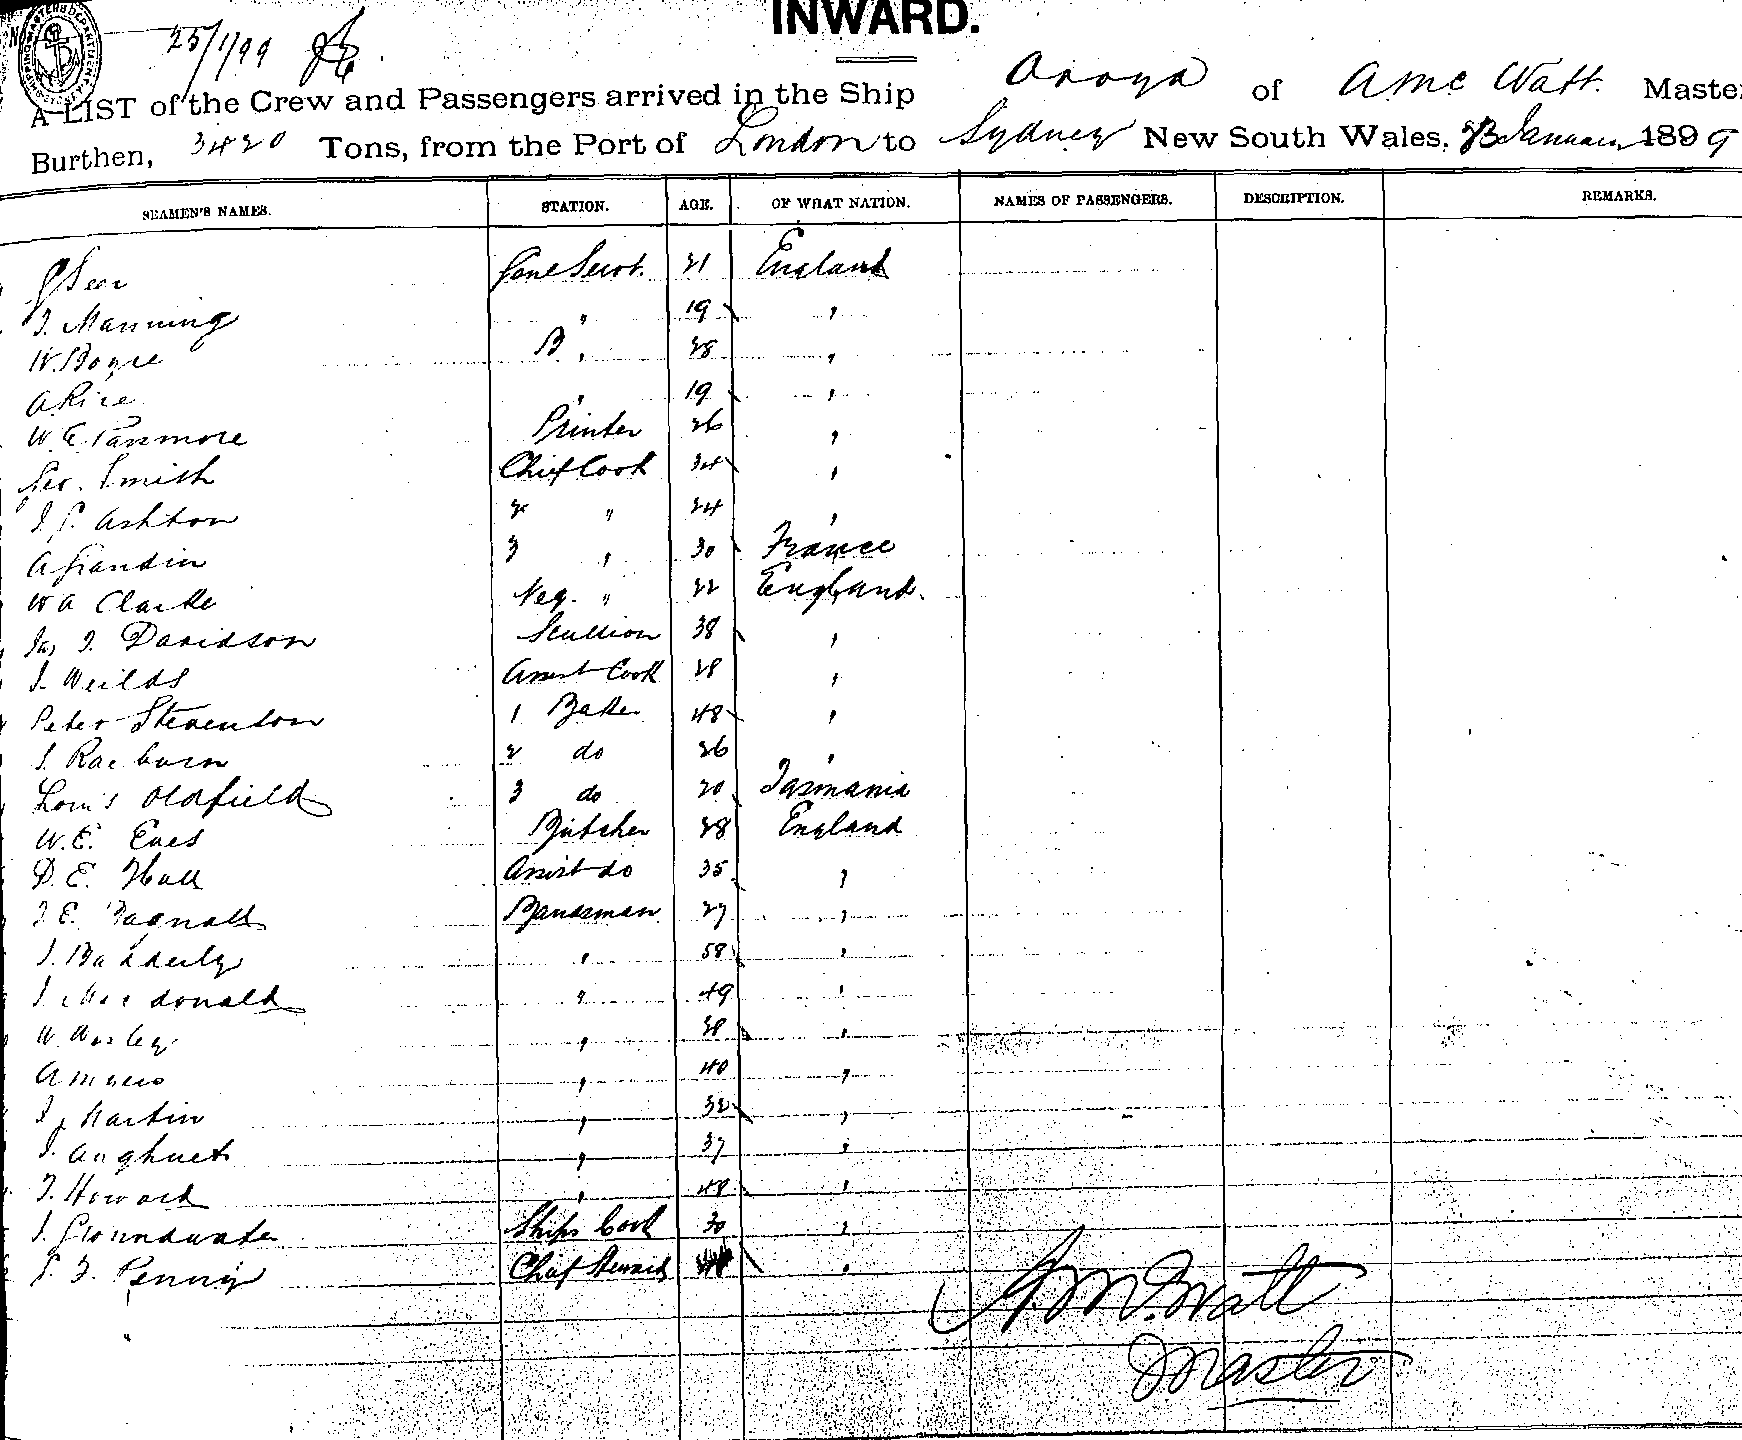 INWARD.
25/1/99
A LIST of the Crew and Passengers arrived in the Ship Oroya of A Mc Watt. Master
Burthen, 3420 Tons, from the Port of London to Sydney New South Wales, 23 January 1899
SEAMEN'S NAMES. STATION. AGE. OF WHAT NATION. NAMES OF PASSENGERS. DESCRIPTION. REMARKS.
21 England
Manning " 19 "
W. Boyce B " 28 "
A Rice " 19 "
W. E. Passmore Printer 26 "
Geo. Smith Chief Cook 34 "
Ashton 2 " 24 "
A Grandin 3 " 30 France
W A Clarke Veg. " 22 England.
Jas T. Davidson Scullion 38 "
J. Weilds Assist Cook 28 "
Peter Stevenson 1 Baker 48 "
J. Raeburn 2 do 26 "
Louis Oldfield 3 do 20 Tasmania
W. E. Eves Butcher 28 England
D. E. Hall Assist do 35 "
J E. Bagnall Bandsman 27 "
J. " 58 "
J. Macdonald " 49 "
W. Worley " 38 "
A " 40 "
J. Martin " 32 "
J. " 37 "
T. Howard " 48 "
J. Groundwater Ships Cook 30 "
Penny Chief Steward "
A. McWatt
Master